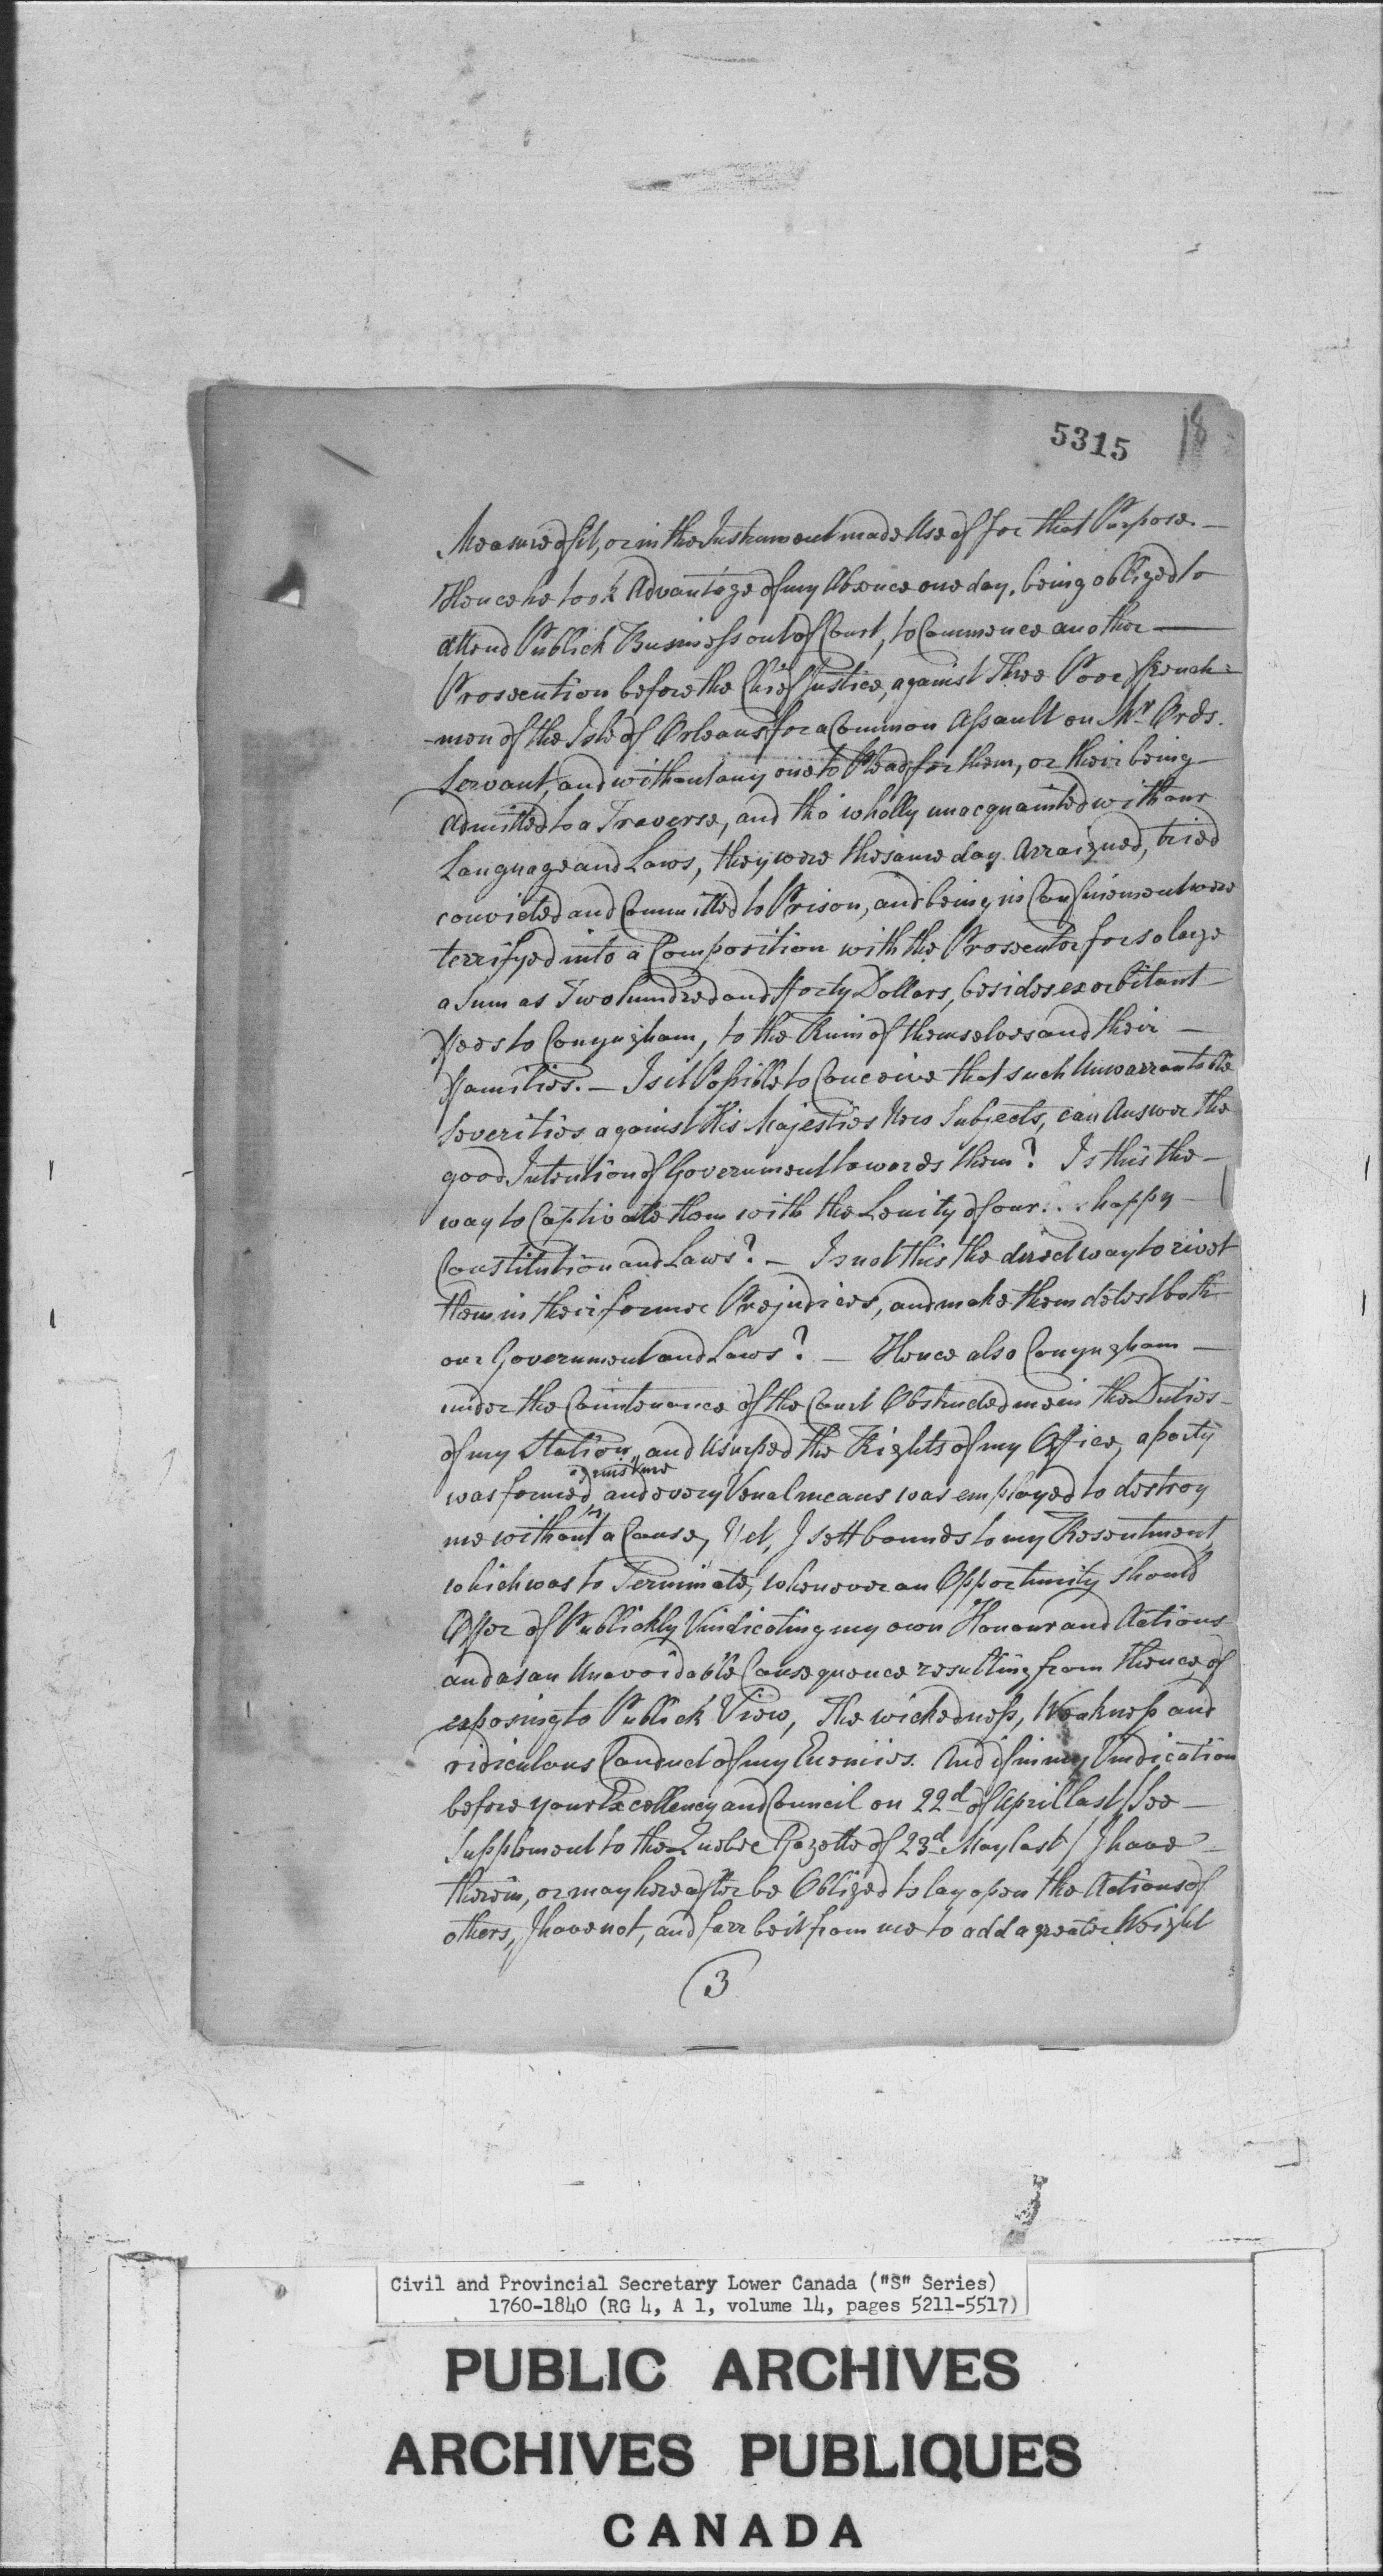 5315
18
Measure of it, or in the Instrument made Use of for that Purpose. —
Hence he took Advantage of my Absence one day, being obliged to
attend Publick Business out of Court, to Commence another —
Prosecution before the Chief Justice, against Three Poor French=
=men of the Isle of Orleans for a Common Assault on Mr. Ords.
Servant, and without any one to Plead for them, or their being
Admitted to a Traverse, and tho' wholly unacquainted with our
Language and Laws, they were the same day Arraigned, tried
convicted and Committed to Prison, and being in Confinement were
terrifyed into a Composition with the Prosecutor for so large
a Sum as Two hundred and Forty Dollars, besides exorbitant
Fees to Conyngham, to the Ruin of themselves and their —
Families. — Is it Possible to Conceive that such Unwarrantable
Severities against His Majesties New Subjects, can Answer the
good Intention of Government towards them? Is this the —
way to Captivate them with the Lenity of our happy —
Constitution and Laws? — Is not this the direct way to rivet
them in their former Prejudices, and make them detest both
our Government and Laws? — Hence also Conyngham —
under the Countenance of the Court Obstructed me in the Duties —
of my Station, and Usurped the Rights of my Office, a party
was formed against me and every Venal means was employed to destroy
me without a Cause, Yet, I sett bounds to my Resentment,
which was to Terminate, whenever an Opportunity should
Offer of Publickly Vindicating my own Honour and Actions
and as an Unavoidable Consequence resulting from thence, of
exposing to Publick View, The wickedness, Weakness and
ridiculous Conduct of my Enemies. And if in my Vindication
before your Excellency and Council on 22d. of April last /See —
Supplement to the Quebec Gazette of 23d. May last/ I have —
therein, or may hereafter be Obliged to lay open the Actions of
others, I have not, and farr be it from me to add a greater Weight
3
Civil and Provincial Secretary Lower Canada ("S" Series)
1760-1840 (RG 4, A 1, volume 14, pages 5211-5517)
PUBLIC ARCHIVES
ARCHIVES PUBLIQUES
CANADA